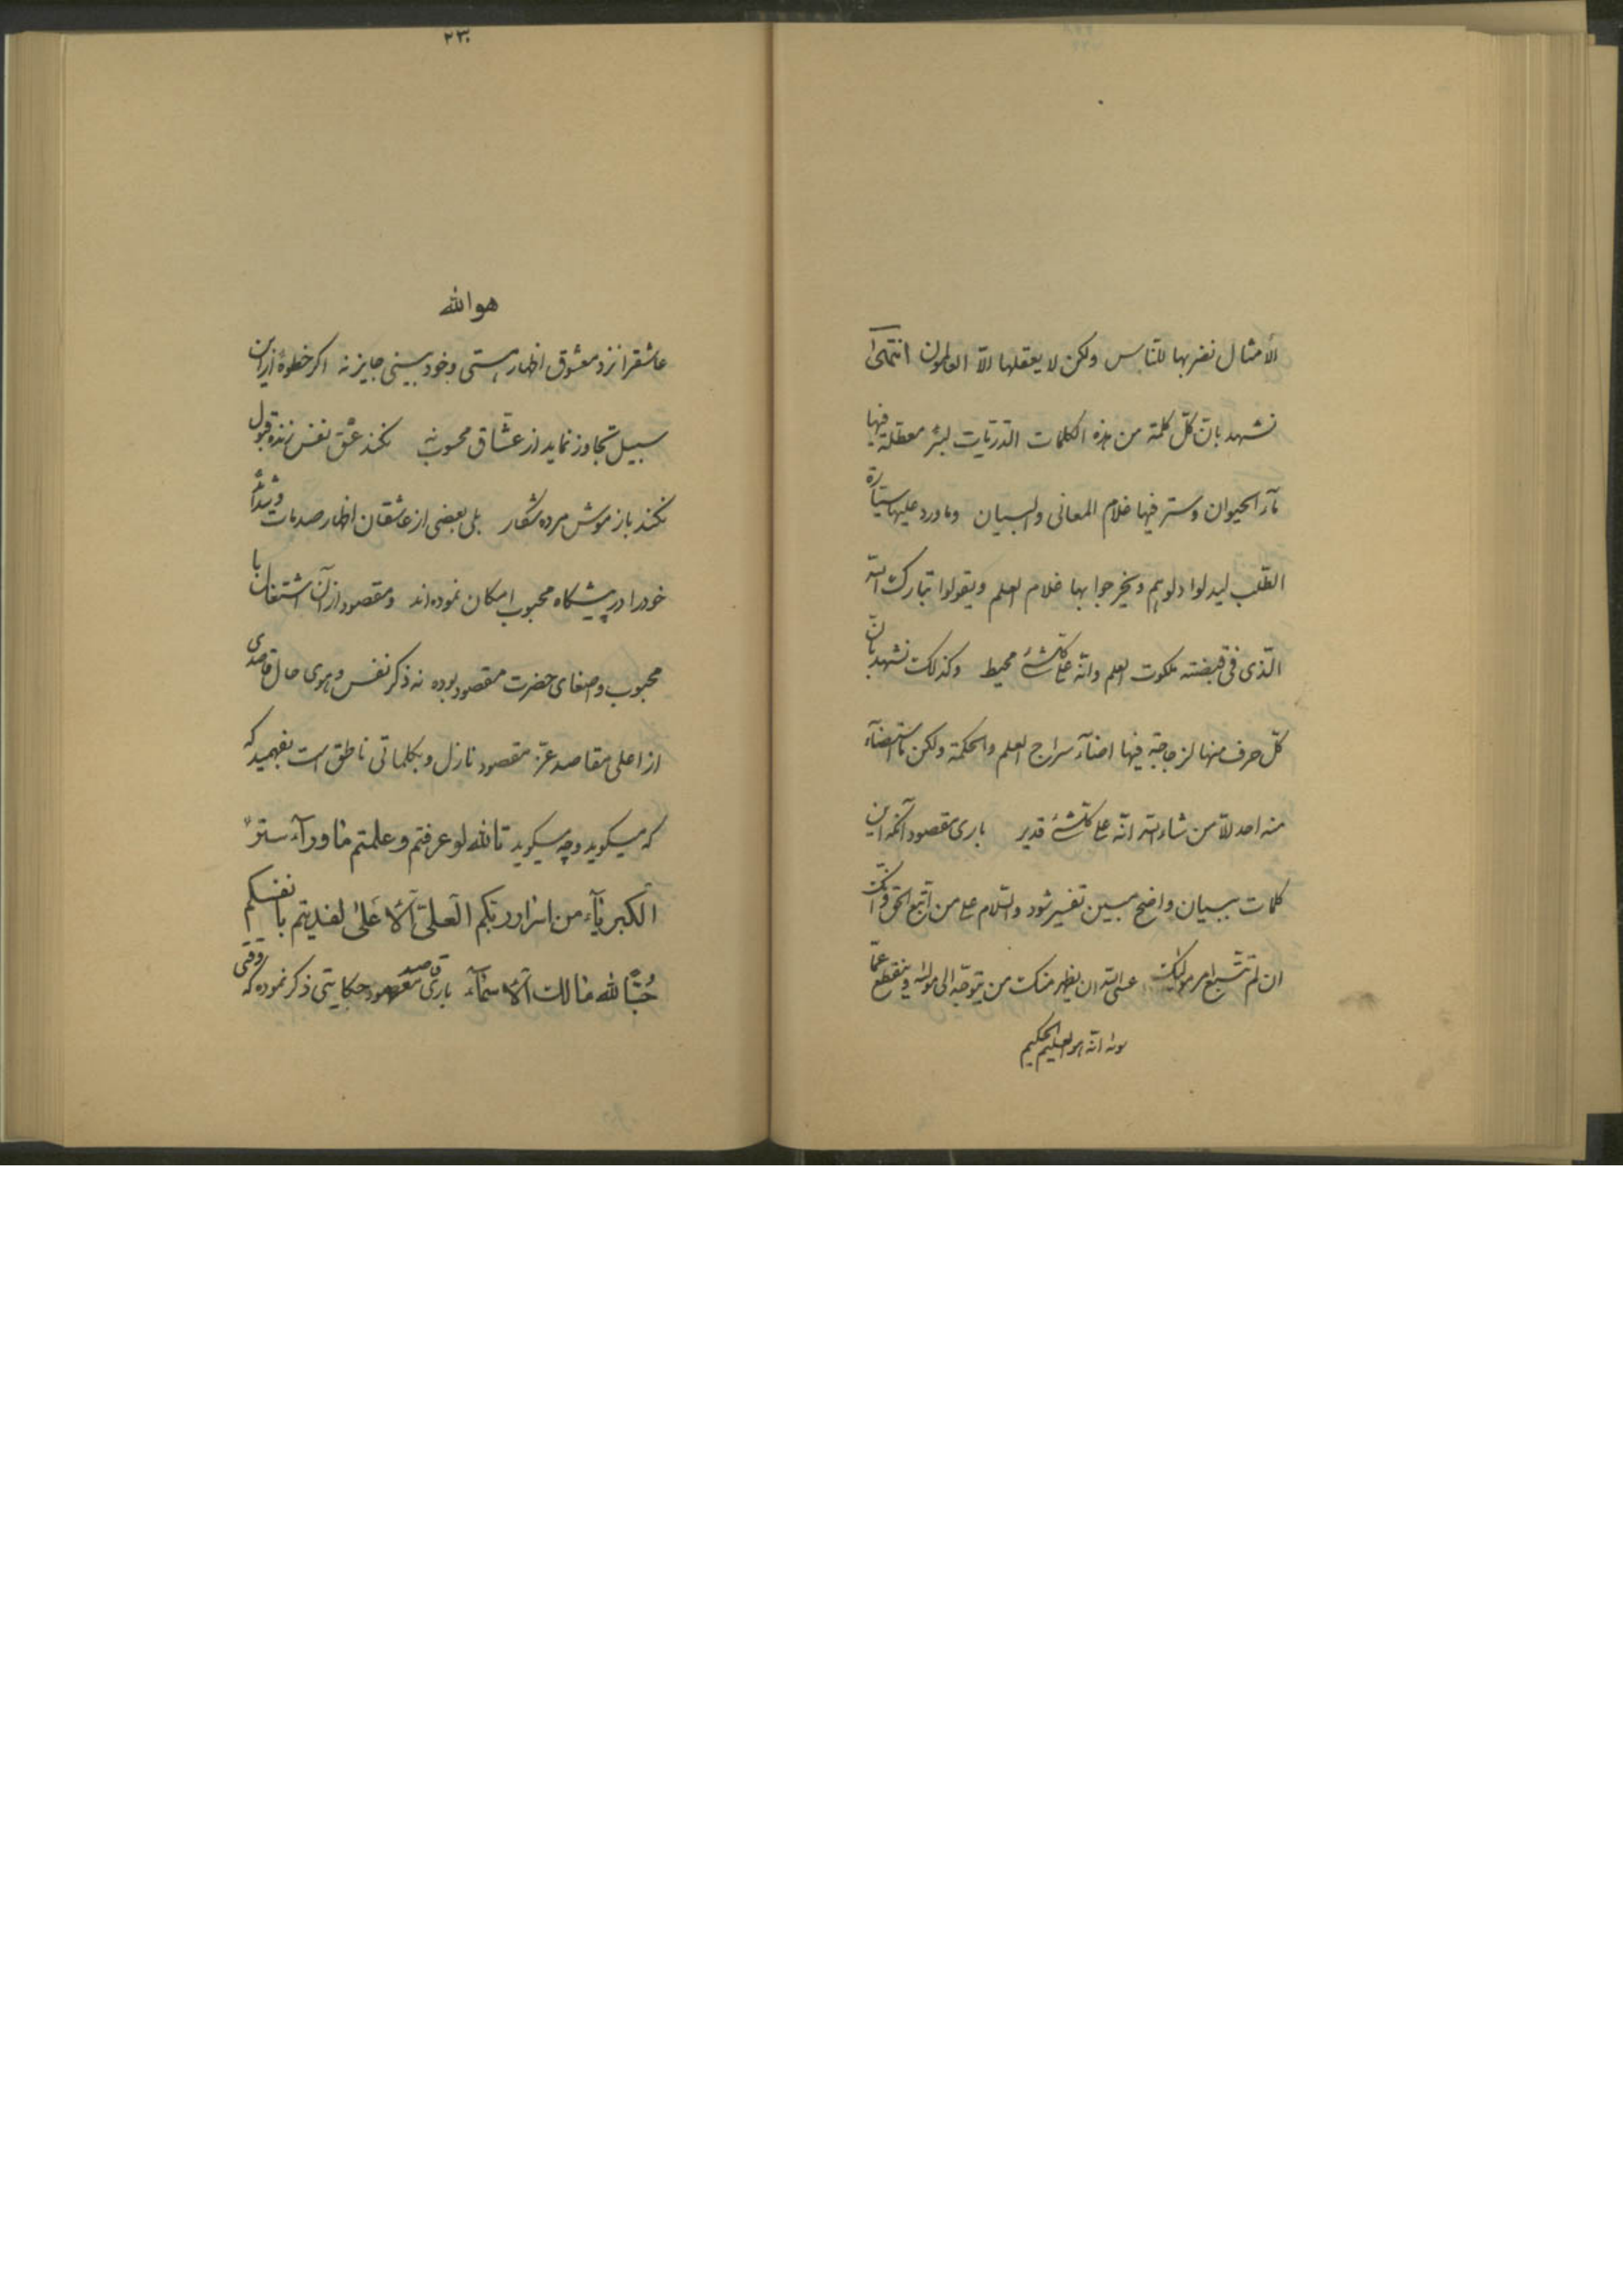 الأمثال نضربها للنّاس ولكن لا يعقلها الّا العالمون انتهى
نشهد بانّ كلّ كلمة من هذه الكلمات الدّرّيّات لبئر معطّلة فيها
مآء الحيوان وستر فيها غلام المعانى والبيان وما ورد عليها سيّارة
الطّلب ليدلوا دلوهم ويخرجوا بها غلام العلم ويقولوا تبارك الله
الّذى فى قبضته ملكوت العلم وانّه على كلّشئ محيط وكذلك نشهد بانّ
كلّ حرف منها لزجاجة فيها اضآء سراج العلم والحكمة ولكن ما استضآء
منه احد الّا من شاء الله انّه على كلّشئ قدير بارى مقصود آنكه اين
كلمات ببيان واضح مبين تفسير شود والسّلام على من اتّبع الحقّ وانّك
ان لم تتّبع امر مولاك عسى الله ان يظهر منك من يتوجّه الى مولاه وينقطع عمّا
سواه انّه لهو العليم الحكيم
٢٣٠
هو الله
عاشقرا نزد معشوق اظهار هستى وخودبينى جايز نه اكر خطوهٔ ازين
سبيل تجاوز نمايد از عشّاق محسوب نه نكند عشق نفس زنده قبول
نكند باز موش مرده شكار بلى بعضى از عاشقان اظهار صدمات وشدائد
خودرا در پيشكاه محبوب امكان نموده‌اند ومقصود از آن اشتغال با
محبوب واصغاى حضرت مقصود بوده نه ذكر نفس وهوى حال قاصدى
از اعلى مقاصد عزّ مقصود نازل وبكلماتى ناطق است بفهميد كه
كه ميكويد وچه ميكويد تالله لو عرفتم وعلمتم ما ورآء ستر
الكبريآء من اسرار ربّكم العلىّ الأعلى لفديتم بانفسكم
حبّاً لله مالك الأسمآء بارى قاصد معهود حكايتى ذكر نموده كه روزى